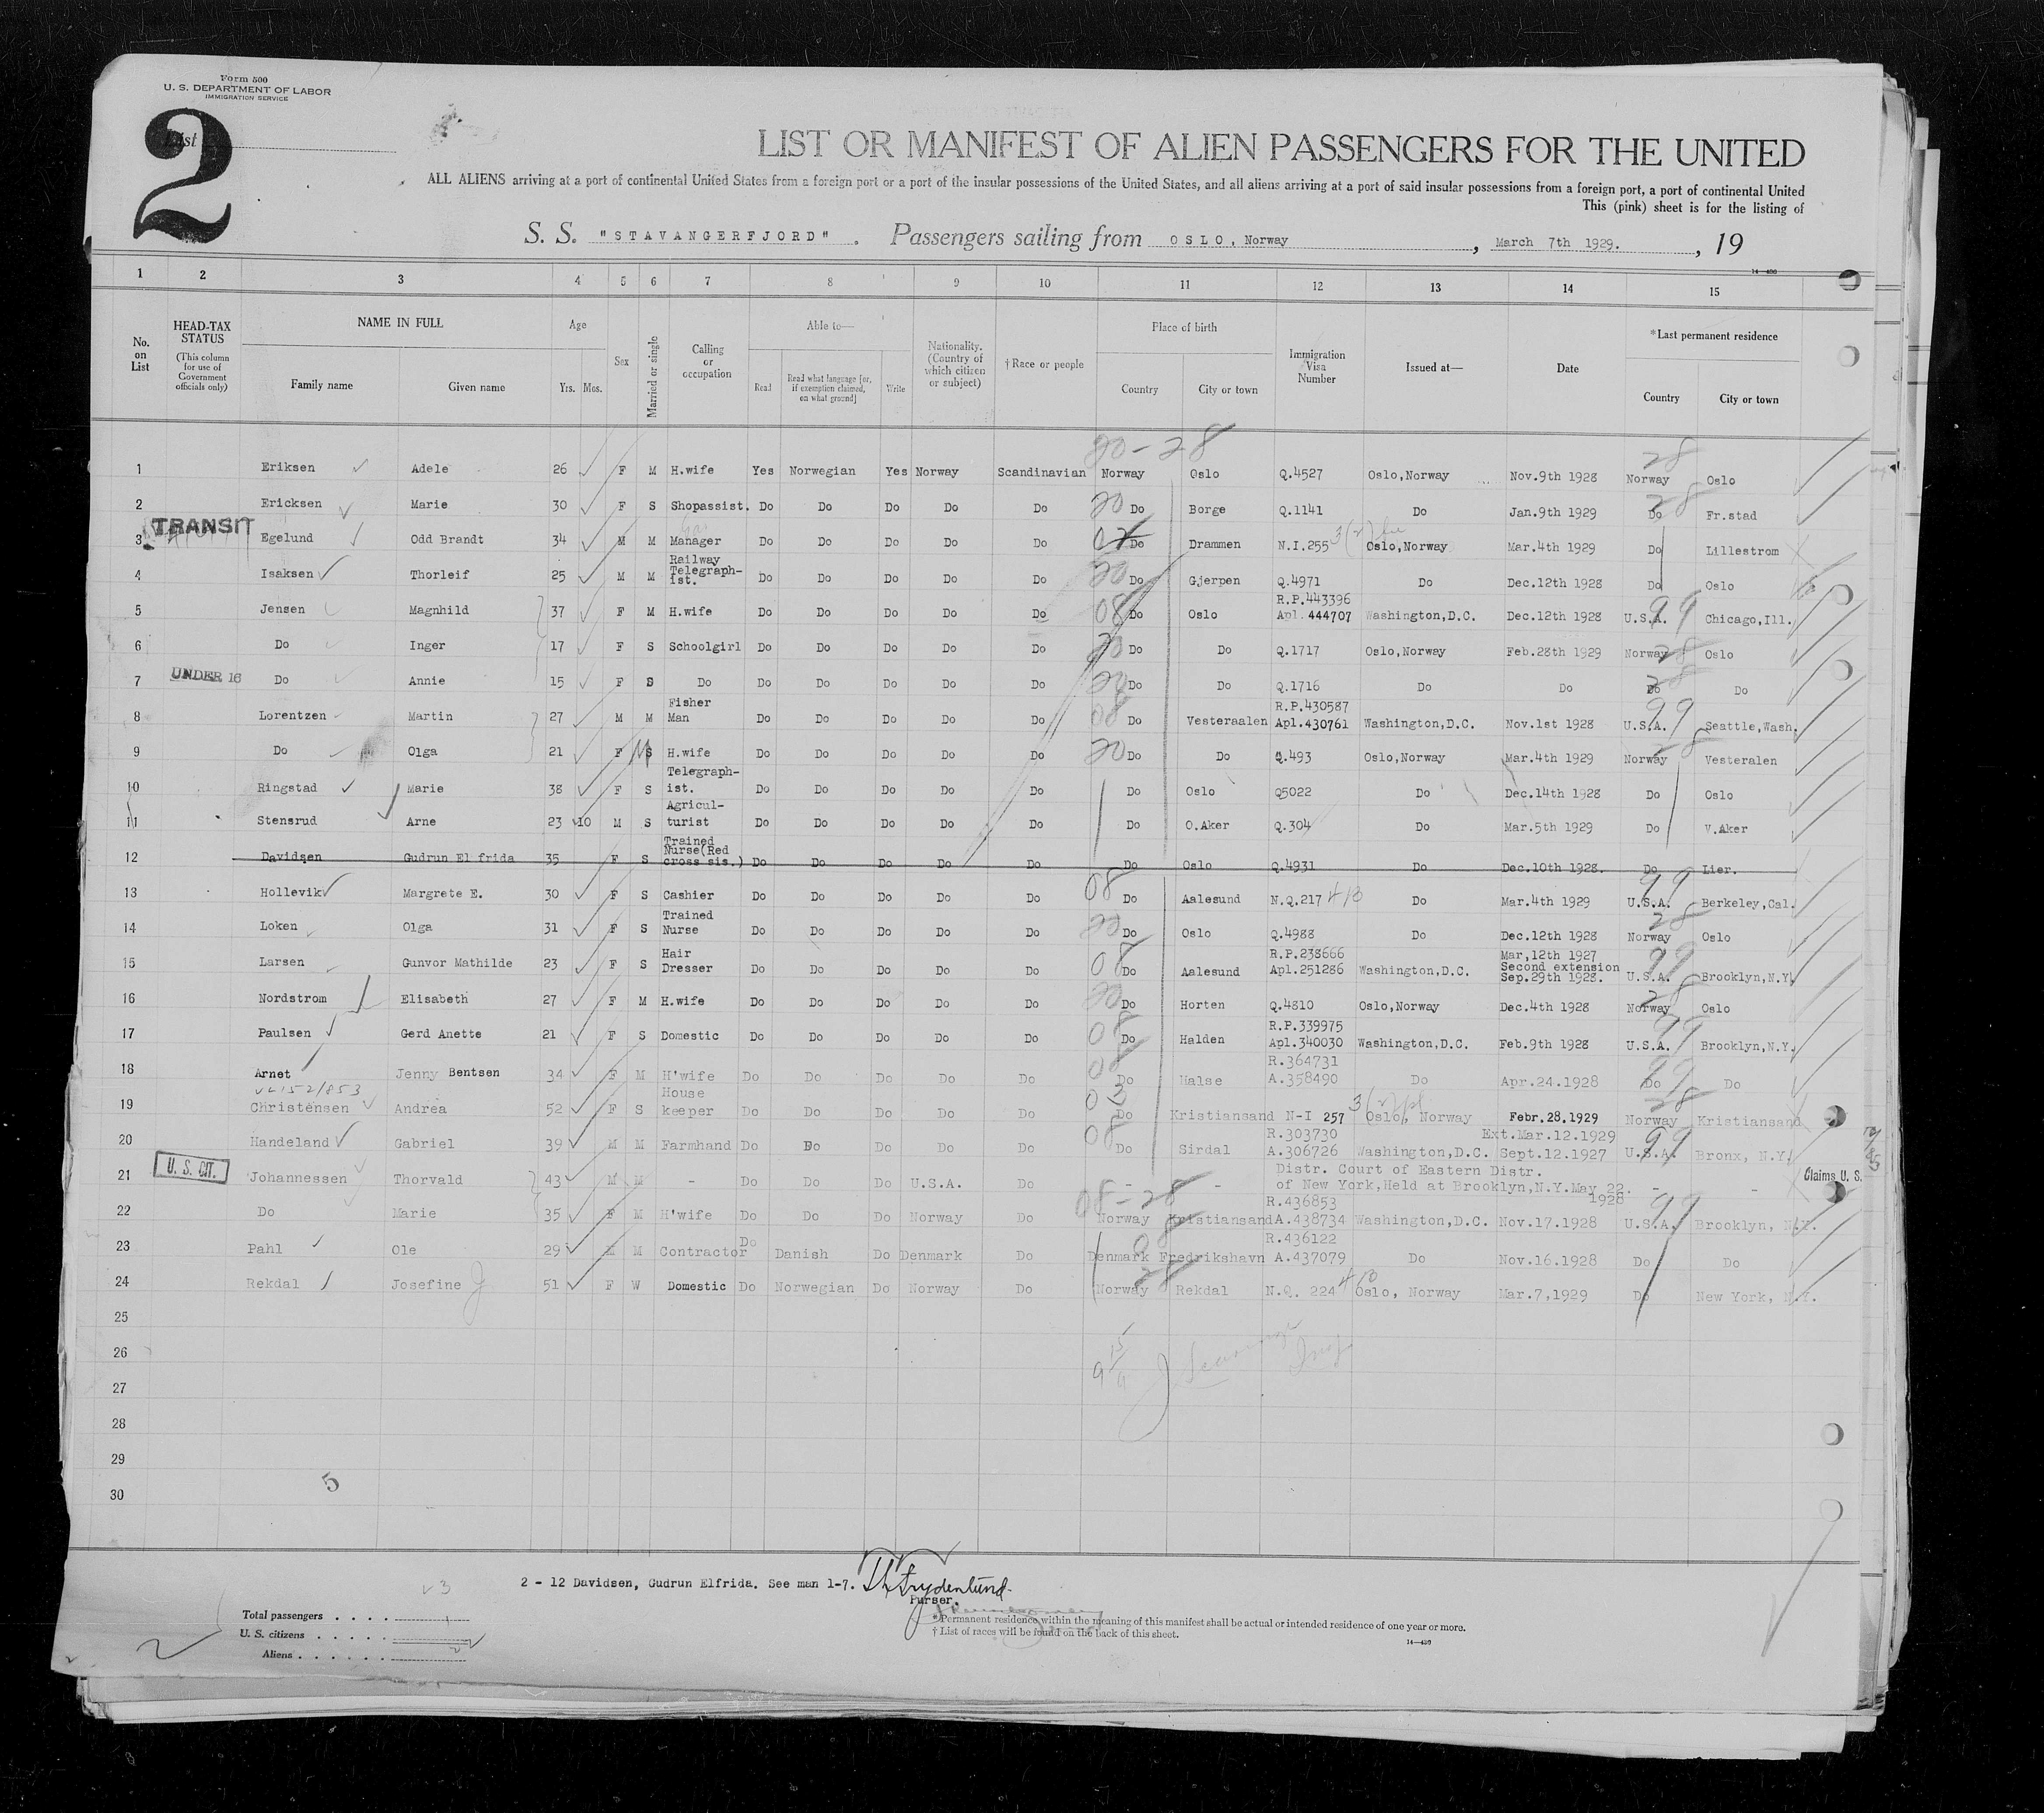 Form 500
U. S. DEPARTMENT OF LABOR
IMMIGRATION SERVICE
List
2
LIST OR MANIFEST OF ALIEN PASSENGERS FOR THE UNITED
ALL ALIENS arriving at a port of continental United States from a foreign port or a port of the insular possessions of the United States, and all aliens arriving at a port of said insular possessions from a foreign port, a port of continental United
This (pink) sheet is for the listing of
S. S. "STAVANGERFJORD". Passengers sailing from OSLO, Norway, March 7th 1929., 19
14—430
1 2 3 4 5 6 7 8 9 10 11 12 13 14 15
No. on List
HEAD-TAX STATUS (This column for use of Government officials only)
NAME IN FULL Family name Given name
Age Yrs. Mos.
Sex
Married or single
Calling or occupation
Able to— Read Read what language [or, if exemption claimed, on what ground] Write
Nationality. (Country of which citizen or subject)
†Race or people
Place of birth Country City or town
Immigration Visa Number
Issued at—
Date
*Last permanent residence Country City or town
20-28 28
1 Eriksen Adele 26 F M H.wife Yes Norwegian Yes Norway Scandinavian Norway Oslo Q.4527 Oslo,Norway Nov.9th 1928 Norway Oslo
2 Ericksen Marie 30 F S Shopassist. Do Do Do Do Do 20 Do Borge Q.1141 Do Jan.9th 1929 Do 28 Fr.stad
TRANSIT
3 Egelund Odd Brandt 34 M M Manager Do Do Do Do Do Do Drammen N.I.255 Oslo,Norway Mar.4th 1929 Do Lillestrom
4 Isaksen Thorleif 25 M M Railway Telegraph-ist. Do Do Do Do Do 20 Do Gjerpen Q.4971 Do Dec.12th 1928 Do Oslo
5 Jensen Magnhild 37 F M H.wife Do Do Do Do Do 08 Do Oslo R.P.443396 Apl.444707 Washington,D.C. Dec.12th 1928 U.S.A. 99 Chicago,Ill.
6 Do Inger 17 F S Schoolgirl Do Do Do Do Do 20 Do Do Q.1717 Oslo,Norway Feb.28th 1929 Norway 28 Oslo
UNDER 16
7 Do Annie 15 F S Do Do Do Do Do Do 20 Do Do Q.1716 Do Do Do 28 Do
8 Lorentzen Martin 27 M M Fisher Man Do Do Do Do Do 08 Do Vesteraalen R.P.430587 Apl.430761 Washington,D.C. Nov.1st 1928 U.S.A. 99 Seattle,Wash.
9 Do Olga 21 F M S H.wife Do Do Do Do Do 20 Do Do Q.493 Oslo,Norway Mar.4th 1929 Norway 28 Vesteralen
10 Ringstad Marie 38 F S Telegraph-ist. Do Do Do Do Do Do Oslo Q5022 Do Dec.14th 1928 Do Oslo
11 Stensrud Arne 23 10 M S Agricul-turist Do Do Do Do Do Do O.Aker Q.304 Do Mar.5th 1929 Do V.Aker
12 Davidsen Gudrun Elfrida 35 F S Trained Nurse(Red cross sis.) Do Do Do Do Do Do Oslo Q.4931 Do Dec.10th 1928. Do Lier.
13 Hollevik Margrete E. 30 F S Cashier Do Do Do Do Do 08 Do Aalesund N.Q.217 Do Mar.4th 1929 U.S.A. 99 Berkeley,Cal.
14 Loken Olga 31 F S Trained Nurse Do Do Do Do Do 20 Do Oslo Q.4988 Do Dec.12th 1928 Norway 28 Oslo
15 Larsen Gunvor Mathilde 23 F S Hair Dresser Do Do Do Do Do 08 Do Aalesund R.P.238666 Apl.251286 Washington,D.C. Mar,12th 1927 Second extension Sep.29th 1928. U.S.A. 99 Brooklyn,N.Y.
16 Nordstrom Elisabeth 27 F M H.wife Do Do Do Do Do 20 Do Horten Q.4810 Oslo,Norway Dec.4th 1928 Norway 28 Oslo
17 Paulsen Gerd Anette 21 F S Domestic Do Do Do Do Do 08 Do Halden R.P.339975 Apl.340030 Washington,D.C. Feb.9th 1928 U.S.A. 99 Brooklyn,N.Y.
18 Arnet Jenny Bentsen 34 F M H'wife Do Do Do Do Do 08 Do Halse R.364731 A.358490 Do Apr.24.1928 Do 99 Do
19 Christensen Andrea 52 F S House keeper Do Do Do Do Do 03 Do Kristiansand N-I 257 Oslo, Norway Febr.28.1929 Norway 28 Kristiansand
20 Handeland Gabriel 39 M M Farmhand Do Do Do Do Do 08 Do Sirdal R.303730 A.306726 Washington,D.C. Ext.Mar.12.1929 Sept.12.1927 U.S.A. 99 Bronx, N.Y.
U. S. CIT.
21 Johannessen Thorvald 43 M M - Do Do Do U.S.A. Do - - Distr. Court of Eastern Distr. of New York,Held at Brooklyn,N.Y.May 22. 1928 - - Claims U. S.
22 Do Marie 35 F M H'wife Do Do Do Norway Do 08-28 Norway Kristiansand R.436853 A.438734 Washington,D.C. Nov.17.1928 U.S.A. 99 Brooklyn, N.Y.
23 Pahl Ole 29 M M Contractor Do Danish Do Denmark Do 08 Denmark Fredrikshavn R.436122 A.437079 Do Nov.16.1928 Do Do
24 Rekdal Josefine J 51 F W Domestic Do Norwegian Do Norway Do 28 Norway Rekdal N.Q. 224 Oslo, Norway Mar.7,1929 Do New York, N.Y.
25
26
27
28
29
30
5
2 - 12 Davidsen, Gudrun Elfrida. See man 1-7.
Purser.
Total passengers
U. S. citizens
Aliens
* Permanent residence within the meaning of this manifest shall be actual or intended residence of one year or more.
† List of races will be found on the back of this sheet.
14—430